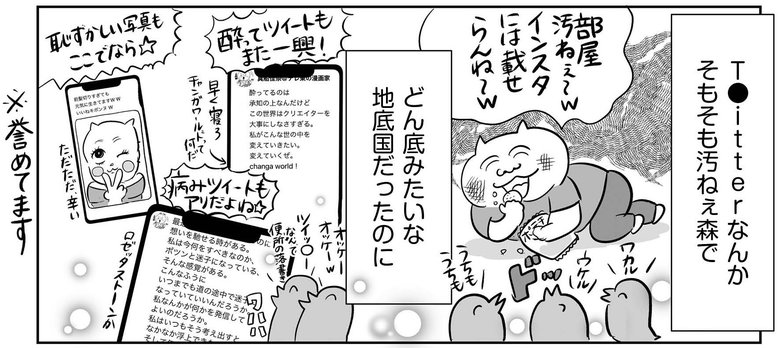 T●itterなんか
そもそも汚ねぇ森で
部屋
汚ねぇ〜w
インスタ
には載せ
らんね〜w
ワカル
ウケル
うちも
うちも
ドッ
どん底みたいな
地底国だったのに
酔ってツイートも
また一興!
酔ってるのは
承知の上なんだけど
この世界はクリエイターを
大事にしなさすぎる。
私がこんな世の中を
変えていきたい。
変えていくぜ。
changa world!
早く寝ろ
チャンガワールドって
何だ
恥ずかしい写真も
ここでなら☆
前髪切りすぎても
元気に生きてますWW
いいねキボンヌWW
ただただ、辛い
病みツイートも
アリだよね☆
想いを馳せる時がある。
私は今何をすべきなのか、
ポツンと迷子になっている、
そんな感覚がある。
こんなふうに
いつまでも道の途中で迷子
なっていていいんだろうか
私なんかが何かを発信して
よいのだろうか。
私はいつもそう考え出すと
なかなか浮上でき
ロゼッタストーンか
ツイッ●ー
なんて
便所の落書き
オッケー
オッケーw
ワハハ
※誉めてます